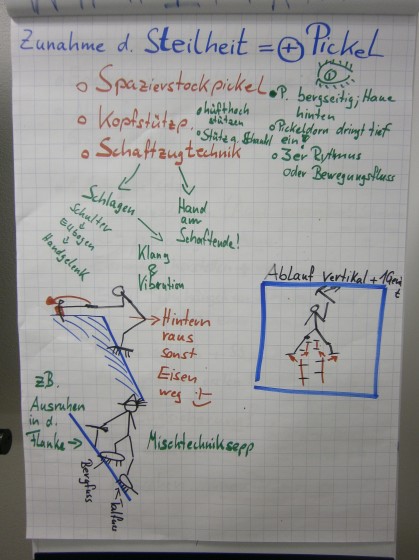 Zunahme d. Steilheit = + Pickel
o Spazierstockpickel
o Kopfstützp.
o hüfthoch stützen
o Stütz a.
o Schaftzugtechnik
• P. bergseitig; Haue
hinten
o Pickeldorn dringt tief
ein!
o 3er Rythmus
oder Bewegungsfluss
Schlagen
Schulter
Ellbogen
Handgelenk
Klang
&
Vibration
Hand
am
Schaftende!
Ablauf vertikal + 1Gerät
Hintern
raus
sonst
Eisen
weg
z.B.
Ausruhen
in d.
Flanke
Mischtechniksepp
Bergfuss
Talfuss